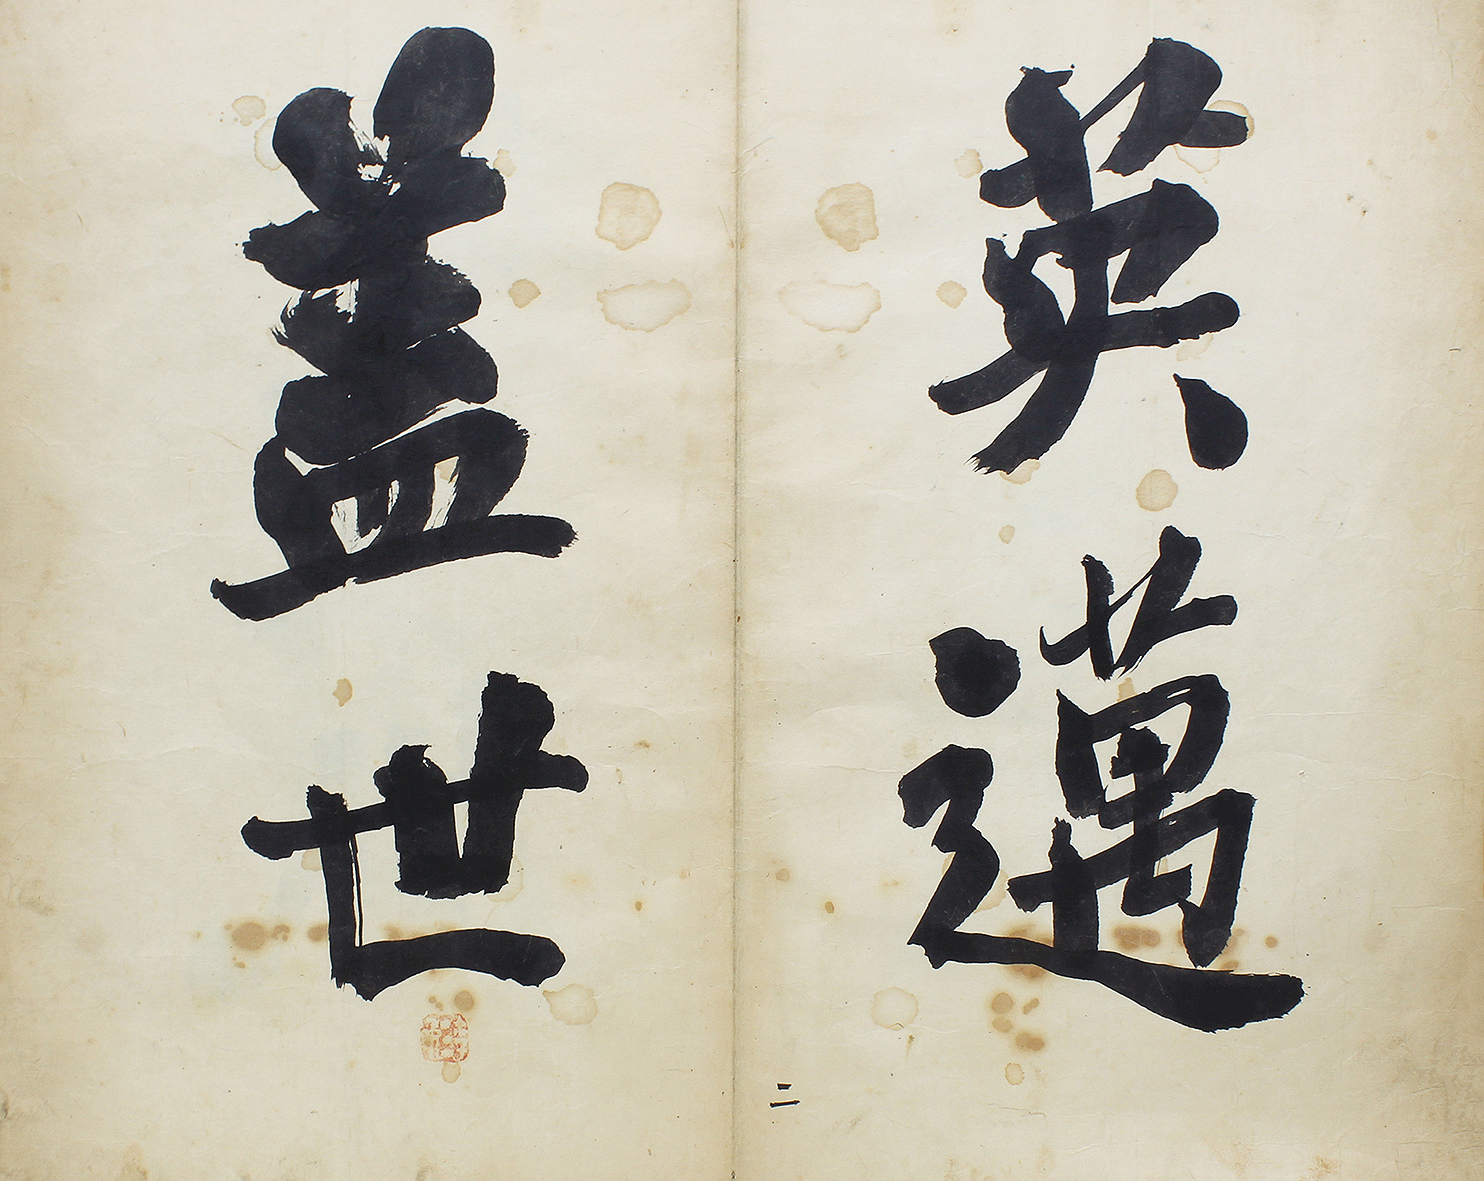 英邁
盖世
二